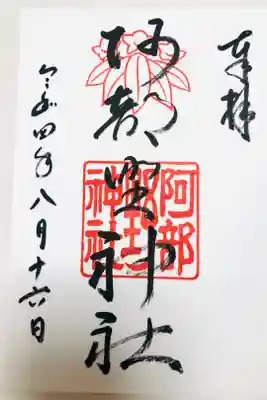 奉拝
阿部野神社
阿部
野神社
令和四年八月十六日